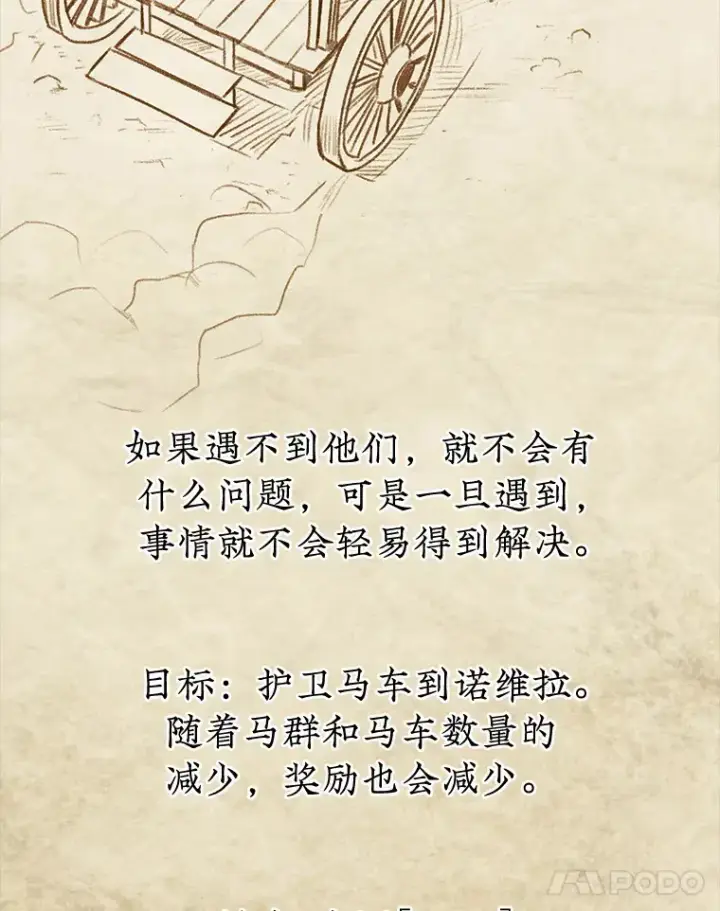 如果遇不到他们，就不会有
什么问题，可是一旦遇到，
事情就不会轻易得到解决。
目标：护卫马车到诺维拉。
随着马群和马车数量的
减少，奖励也会减少。
PODO